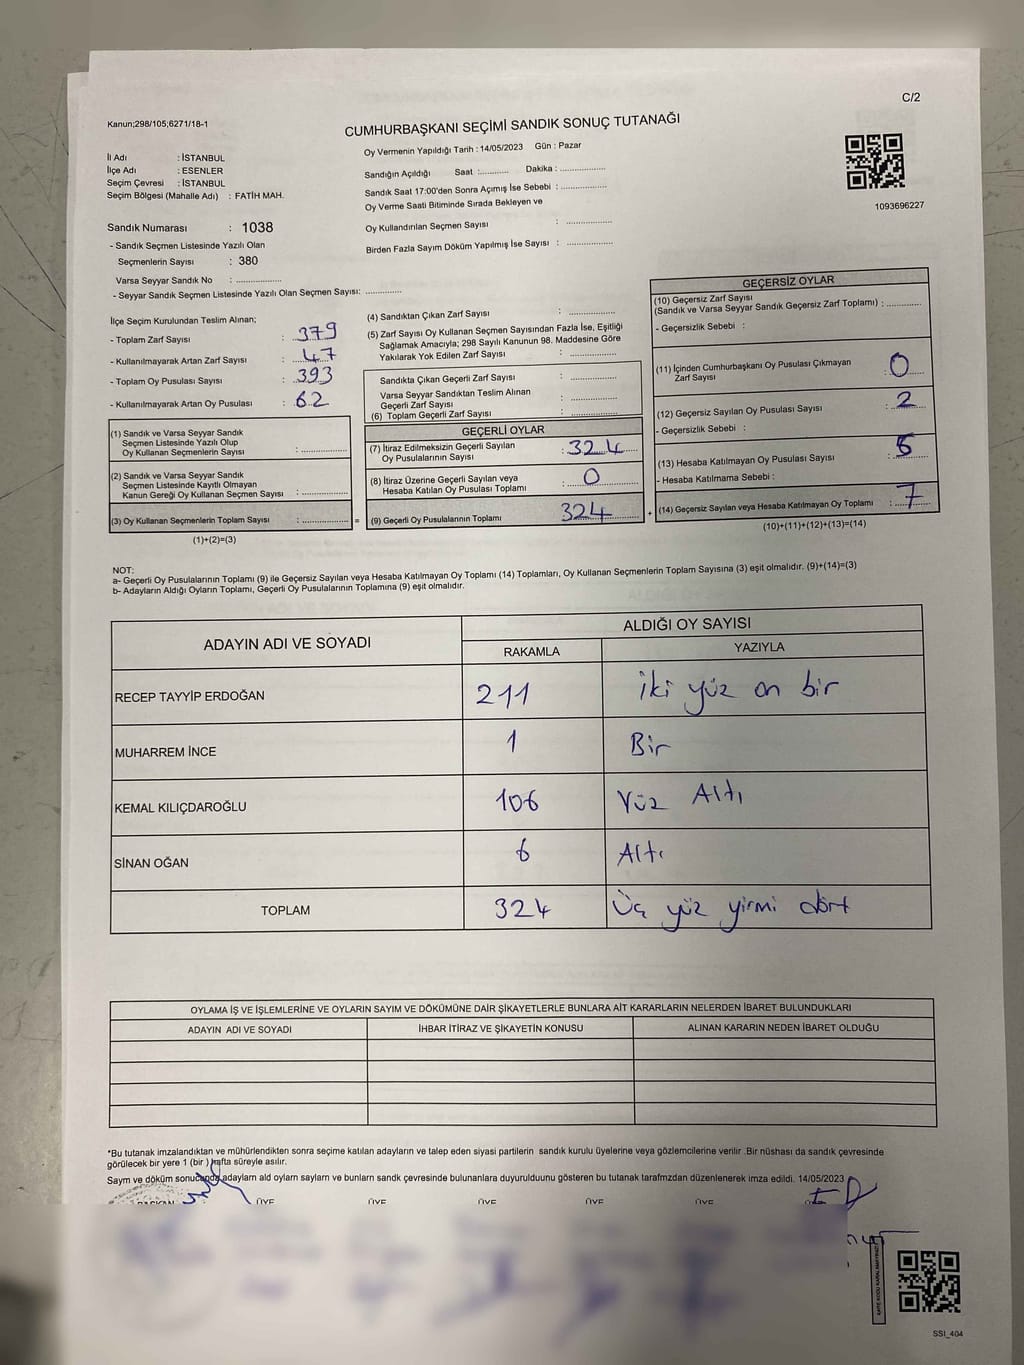 C/2
Kanun;298/105;6271/18-1
CUMHURBAŞKANI SEÇİMİ SANDIK SONUÇ TUTANAĞI
İl Adı : İSTANBUL
İlçe Adı : ESENLER
Seçim Çevresi : İSTANBUL
Seçim Bölgesi (Mahalle Adı) : FATİH MAH.
Oy Vermenin Yapıldığı Tarih : 14/05/2023 Gün : Pazar
Sandığın Açıldığı Saat :........... Dakika : ................
Sandık Saat 17:00'den Sonra Açımış İse Sebebi : ................
Oy Verme Saati Bitiminde Sırada Bekleyen ve
Oy Kullandırılan Seçmen Sayısı : ................
Birden Fazla Sayım Döküm Yapılmış İse Sayısı : ................
1093696227
Sandık Numarası : 1038
- Sandık Seçmen Listesinde Yazılı Olan
Seçmenlerin Sayısı : 380
Varsa Seyyar Sandık No : ................
- Seyyar Sandık Seçmen Listesinde Yazılı Olan Seçmen Sayısı: .............
İlçe Seçim Kurulundan Teslim Alınan;
- Toplam Zarf Sayısı : 379
- Kullanılmayarak Artan Zarf Sayısı : 47
- Toplam Oy Pusulası Sayısı : 393
- Kullanılmayarak Artan Oy Pusulası : 62
(1) Sandık ve Varsa Seyyar Sandık
Seçmen Listesinde Yazılı Olup
Oy Kullanan Seçmenlerin Sayısı : ................
(2) Sandık ve Varsa Seyyar Sandık
Seçmen Listesinde Kayıtlı Olmayan
Kanun Gereği Oy Kullanan Seçmen Sayısı : ................
(3) Oy Kullanan Seçmenlerin Toplam Sayısı : ................ =
(1)+(2)=(3)
(4) Sandıktan Çıkan Zarf Sayısı : ................
(5) Zarf Sayısı Oy Kullanan Seçmen Sayısından Fazla İse, Eşitliği
Sağlamak Amacıyla; 298 Sayılı Kanunun 98. Maddesine Göre
Yakılarak Yok Edilen Zarf Sayısı : ................
Sandıkta Çıkan Geçerli Zarf Sayısı : ................
Varsa Seyyar Sandıktan Teslim Alınan
Geçerli Zarf Sayısı : ................
(6) Toplam Geçerli Zarf Sayısı : ................
GEÇERLİ OYLAR
(7) İtiraz Edilmeksizin Geçerli Sayılan
Oy Pusulalarının Sayısı : 324
(8) İtiraz Üzerine Geçerli Sayılan veya
Hesaba Katılan Oy Pusulası Toplamı : 0
(9) Geçerli Oy Pusulalarının Toplamı 324 +
GEÇERSİZ OYLAR
(10) Geçersiz Zarf Sayısı
(Sandık ve Varsa Seyyar Sandık Geçersiz Zarf Toplamı) : .............
- Geçersizlik Sebebi :
(11) İçinden Cumhurbaşkanı Oy Pusulası Çıkmayan
Zarf Sayısı : 0
(12) Geçersiz Sayılan Oy Pusulası Sayısı : 2
- Geçersizlik Sebebi :
(13) Hesaba Katılmayan Oy Pusulası Sayısı : 5
- Hesaba Katılmama Sebebi :
(14) Geçersiz Sayılan veya Hesaba Katılmayan Oy Toplamı : 7
(10)+(11)+(12)+(13)=(14)
NOT:
a- Geçerli Oy Pusulalarının Toplamı (9) ile Geçersiz Sayılan veya Hesaba Katılmayan Oy Toplamı (14) Toplamları, Oy Kullanan Seçmenlerin Toplam Sayısına (3) eşit olmalıdır. (9)+(14)=(3)
b- Adayların Aldığı Oyların Toplamı, Geçerli Oy Pusulalarının Toplamına (9) eşit olmalıdır.
ADAYIN ADI VE SOYADI
ALDIĞI OY SAYISI
RAKAMLA YAZIYLA
RECEP TAYYİP ERDOĞAN 211 iki yüz on bir
MUHARREM İNCE 1 Bir
KEMAL KILIÇDAROĞLU 106 Yüz Altı
SİNAN OĞAN 6 Altı
TOPLAM 324 Üç yüz yirmi dört
OYLAMA İŞ VE İŞLEMLERİNE VE OYLARIN SAYIM VE DÖKÜMÜNE DAİR ŞİKAYETLERLE BUNLARA AİT KARARLARIN NELERDEN İBARET BULUNDUKLARI
ADAYIN ADI VE SOYADI İHBAR İTİRAZ VE ŞİKAYETİN KONUSU ALINAN KARARIN NEDEN İBARET OLDUĞU
*Bu tutanak imzalandıktan ve mühürlendikten sonra seçime katılan adayların ve talep eden siyasi partilerin sandık kurulu üyelerine veya gözlemcilerine verilir .Bir nüshası da sandık çevresinde
görülecek bir yere 1 (bir ) hafta süreyle asılır.
Saym ve döküm sonucanda adaylam ald oylarn saylarn ve bunlarn sandk çevresinde bulunanlara duyurulduunu gösteren bu tutanak tarafmzdan düzenlenerek imza edildi. 14/05/2023
BAŞKAN ÜYE ÜYE ÜYE ÜYE ÜYE
SSI_404